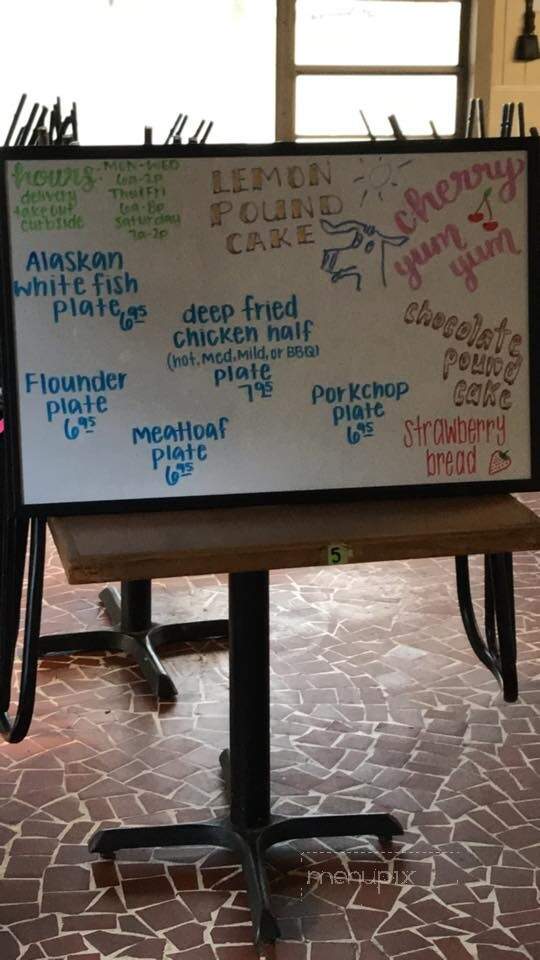 hours:
delivery
take out
curbside
MON-WED
6a-2p
Thu/Fri
6a-8p
Saturday
7a-2p
LEMON
POUND
CAKE
cherry
yum
yum
Alaskan
white fish
plate 6.95
deep fried
chicken half
(hot, Med, Mild, or BBQ)
plate
7.95
chocolate
pound
cake
Flounder
plate
6.95
Meatloaf
plate
6.95
Porkchop
plate
6.95
strawberry
bread
5
menupix